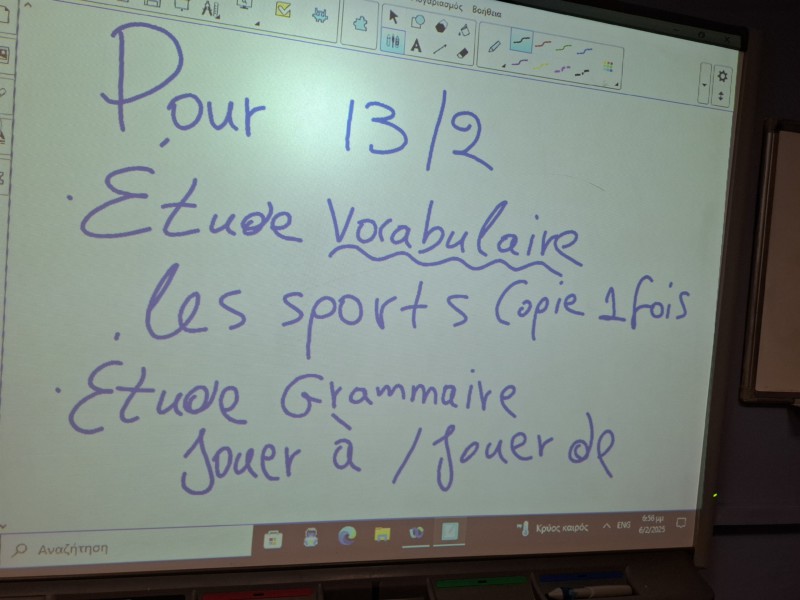 Βοήθεια
Pour 13/2
· Etude Vocabulaire
. les sports Copie 1 fois
· Etude Grammaire
Jouer à / Jouer de
Αναζήτηση
Κρύος καιρός
ENG
6:50 μμ
6/2/2025